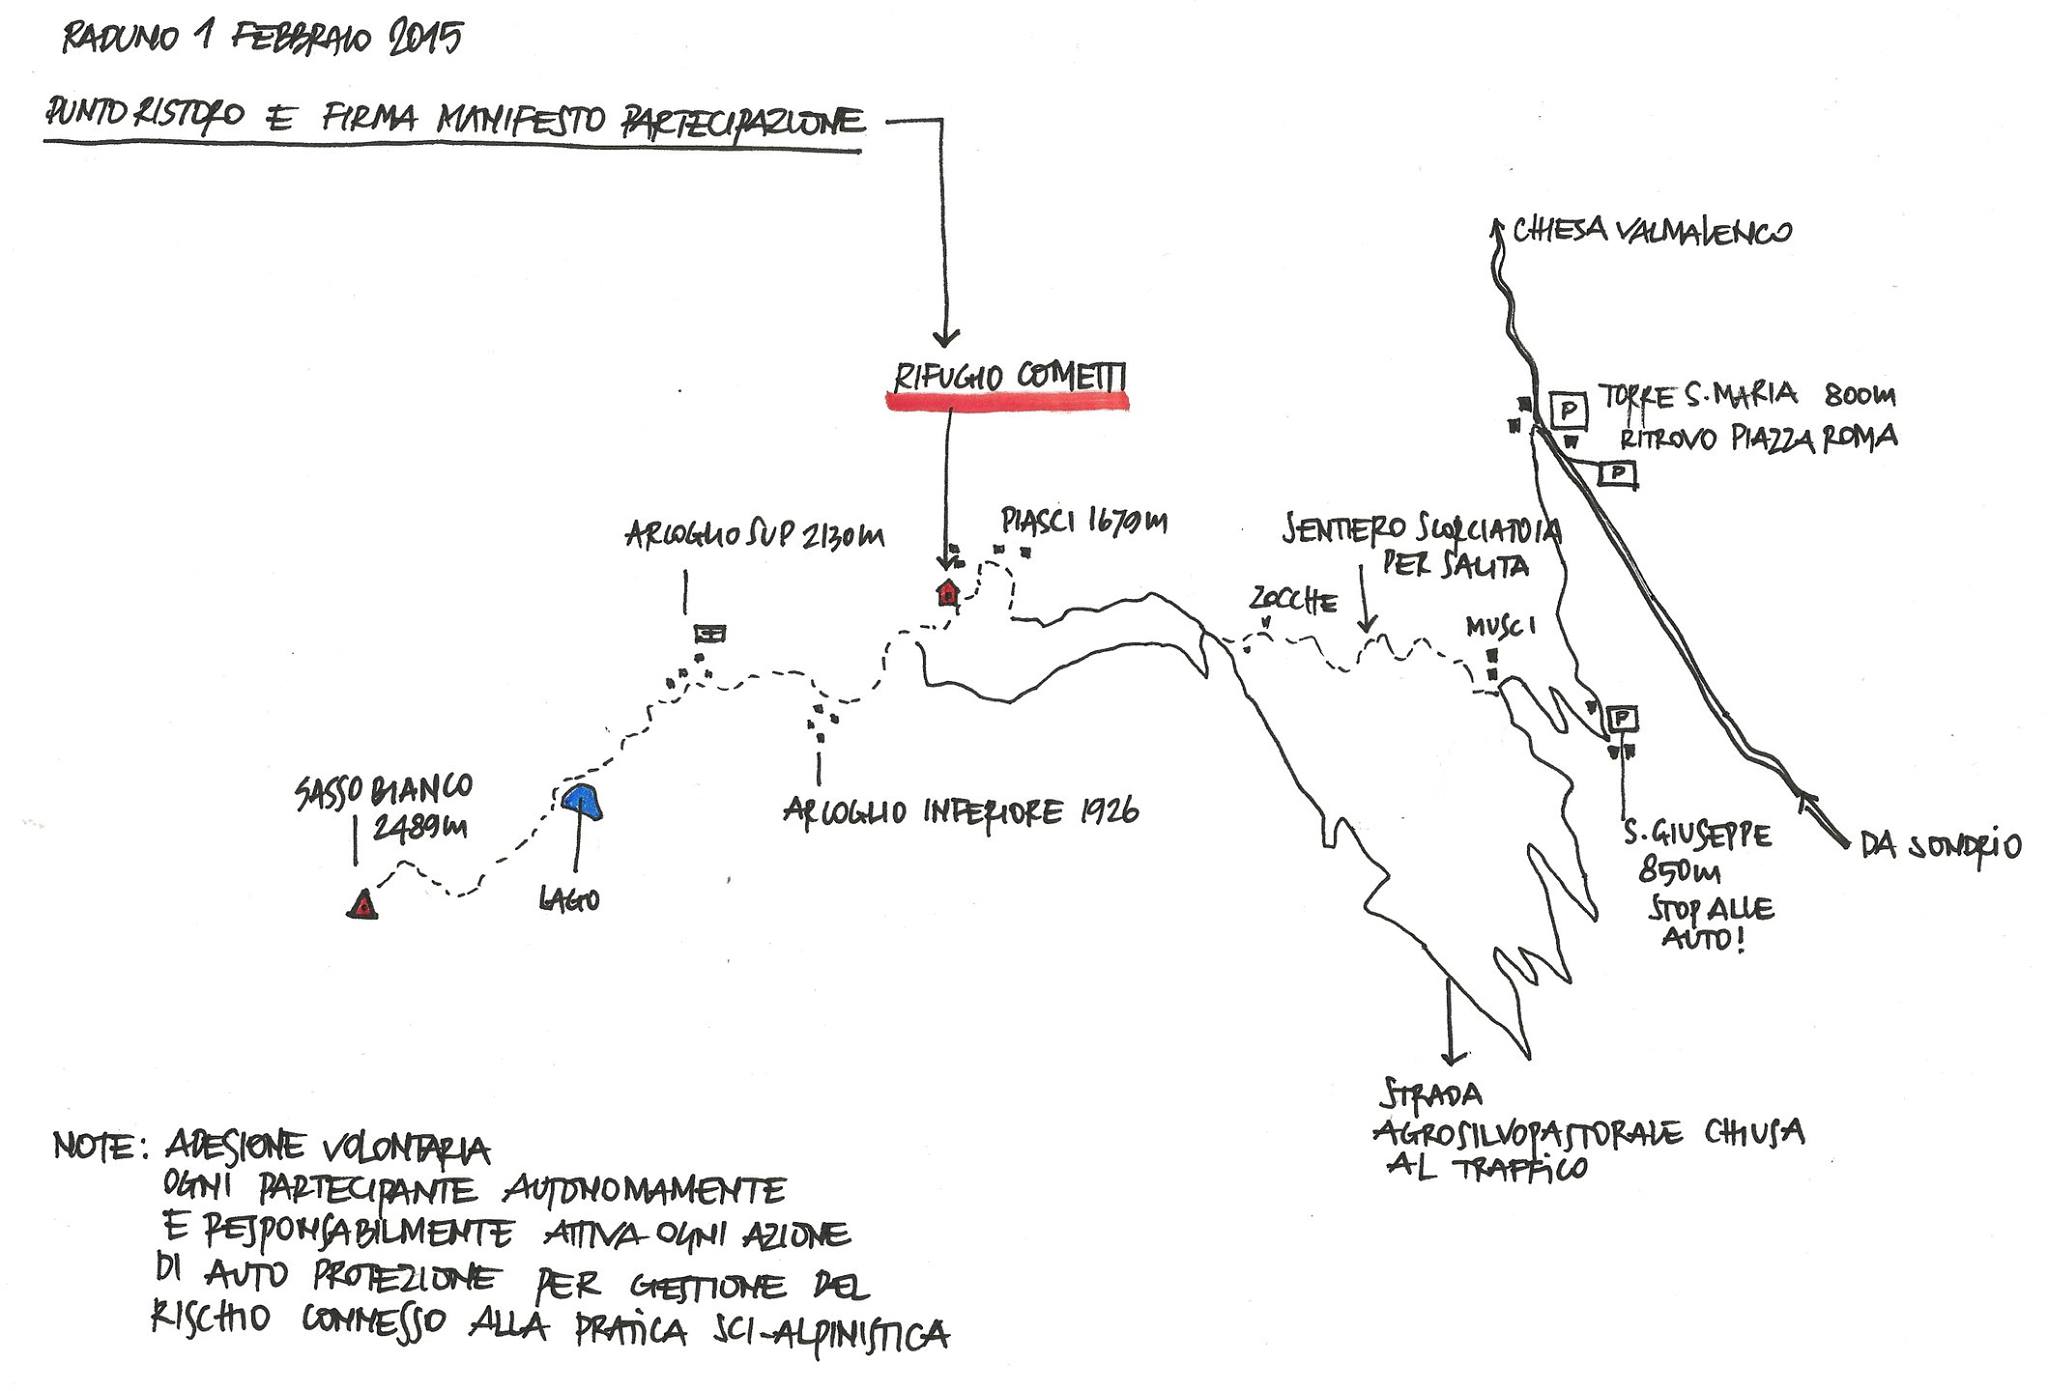 RADUNO 1 FEBBRAIO 2015
PUNTO RISTORO E FIRMA MANIFESTO PARTECIPAZIONE
CHIESA VALMALENCO
RIFUGIO COMETTI
TORRE S. MARIA 800m
RITROVO PIAZZA ROMA
P
P
ARCOGLIO SUP 2130m
PIASCI 1679m
SENTIERO SCORCIATOIA
PER SALITA
ZOCCHE
MUSCI
P
SASSO BIANCO
2489m
LAGO
ARCOGLIO INFERIORE 1926
S. GIUSEPPE
850m
STOP ALLE
AUTO!
DA SONDRIO
STRADA
AGROSILVOPASTORALE CHIUSA
AL TRAFFICO
NOTE: ADESIONE VOLONTARIA
OGNI PARTECIPANTE AUTONOMAMENTE
E RESPONSABILMENTE ATTIVA OGNI AZIONE
DI AUTO PROTEZIONE PER GESTIONE DEL
RISCHIO COMMESSO ALLA PRATICA SCI-ALPINISTICA